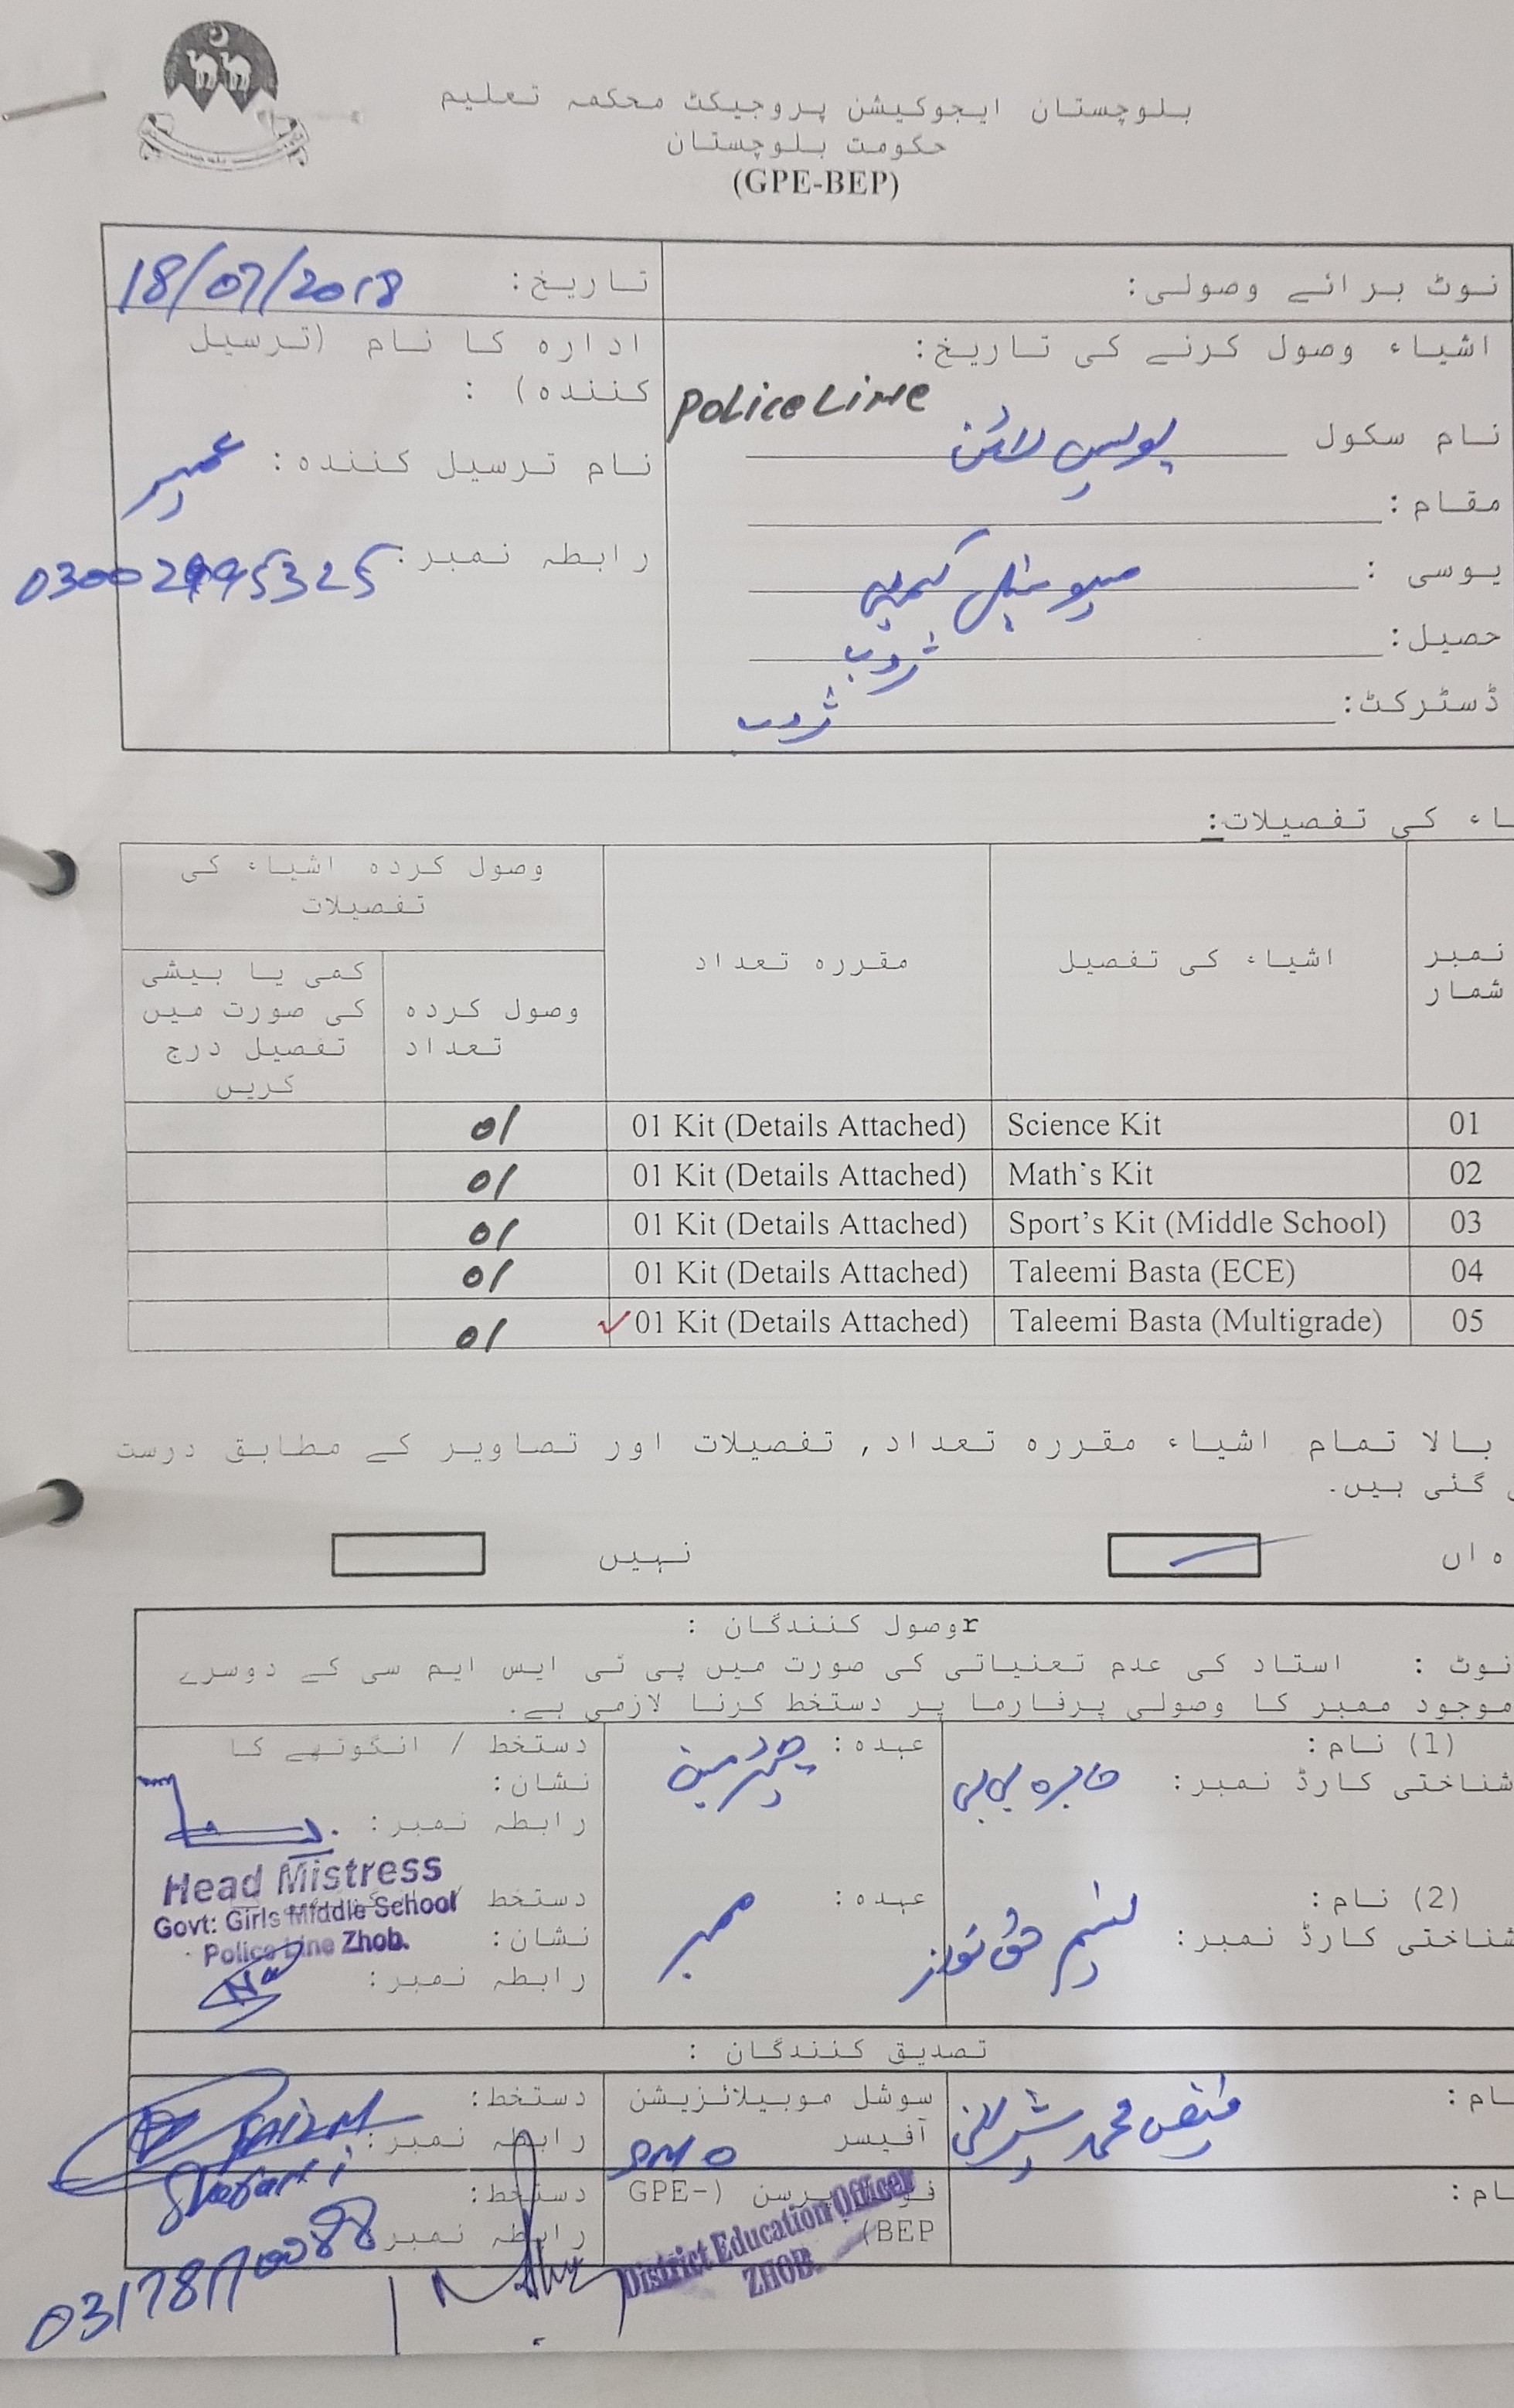 بلوچستان ایجوکیشن پروجیکٹ محکمہ تعلیم
حکومت بلوچستان
(GPE-BEP)
نوٹ برائے وصولی:
تاریخ: 18/07/2018
اشیاء وصول کرنے کی تاریخ:
Police Line
نام سکول پولیس لائن
مقام:
یوسی: میونسپل کمیٹی
حصیل: ژوب
ڈسٹرکٹ: ژوب
ادارہ کا نام (ترسیل
کنندہ) :
نام ترسیل کنندہ: عمیر
رابطہ نمبر:
اء کی تفصیلات:
نمبر شمار
اشیاء کی تفصیل
مقررہ تعداد
وصول کردہ اشیاء کی
تفصیلات
وصول کردہ
تعداد
کمی یا بیشی
کی صورت میں
تفصیل درج
کریں
01 Science Kit 01 Kit (Details Attached) 01
02 Math's Kit 01 Kit (Details Attached) 01
03 Sport's Kit (Middle School) 01 Kit (Details Attached) 01
04 Taleemi Basta (ECE) 01 Kit (Details Attached) 01
05 Taleemi Basta (Multigrade) 01 Kit (Details Attached) 01
بالا تمام اشیاء مقررہ تعداد, تفصیلات اور تصاویر کے مطابق درست
گئی ہیں.
ہاں
نہیں
rوصول کنندگان :
نوٹ : استاد کی عدم تعنیاتی کی صورت میں پی ٹی ایس ایم سی کے دوسرے
موجود ممبر کا وصولی پرفارما پر دستخط کرنا لازمی ہے.
(1) نام:
شناختی کارڈ نمبر: بی بی
عہدہ: چیئرمین
دستخط / انگوٹھے کا
نشان:
رابطہ نمبر:
Head Mistress
Govt: Girls Middle School
Police Line Zhob.
(2) نام:
شناختی کارڈ نمبر:
عہدہ: ممبر
دستخط
نشان:
رابطہ نمبر:
تصدیق کنندگان :
ام: فیض محمد شیرانی
سوشل موبیلائزیشن
آفیسر SMO
دستخط:
رابطہ نمبر:
ام:
(GPE-
BEP)
دستخط:
رابطہ نمبر
District Education Officer
ZHOB.